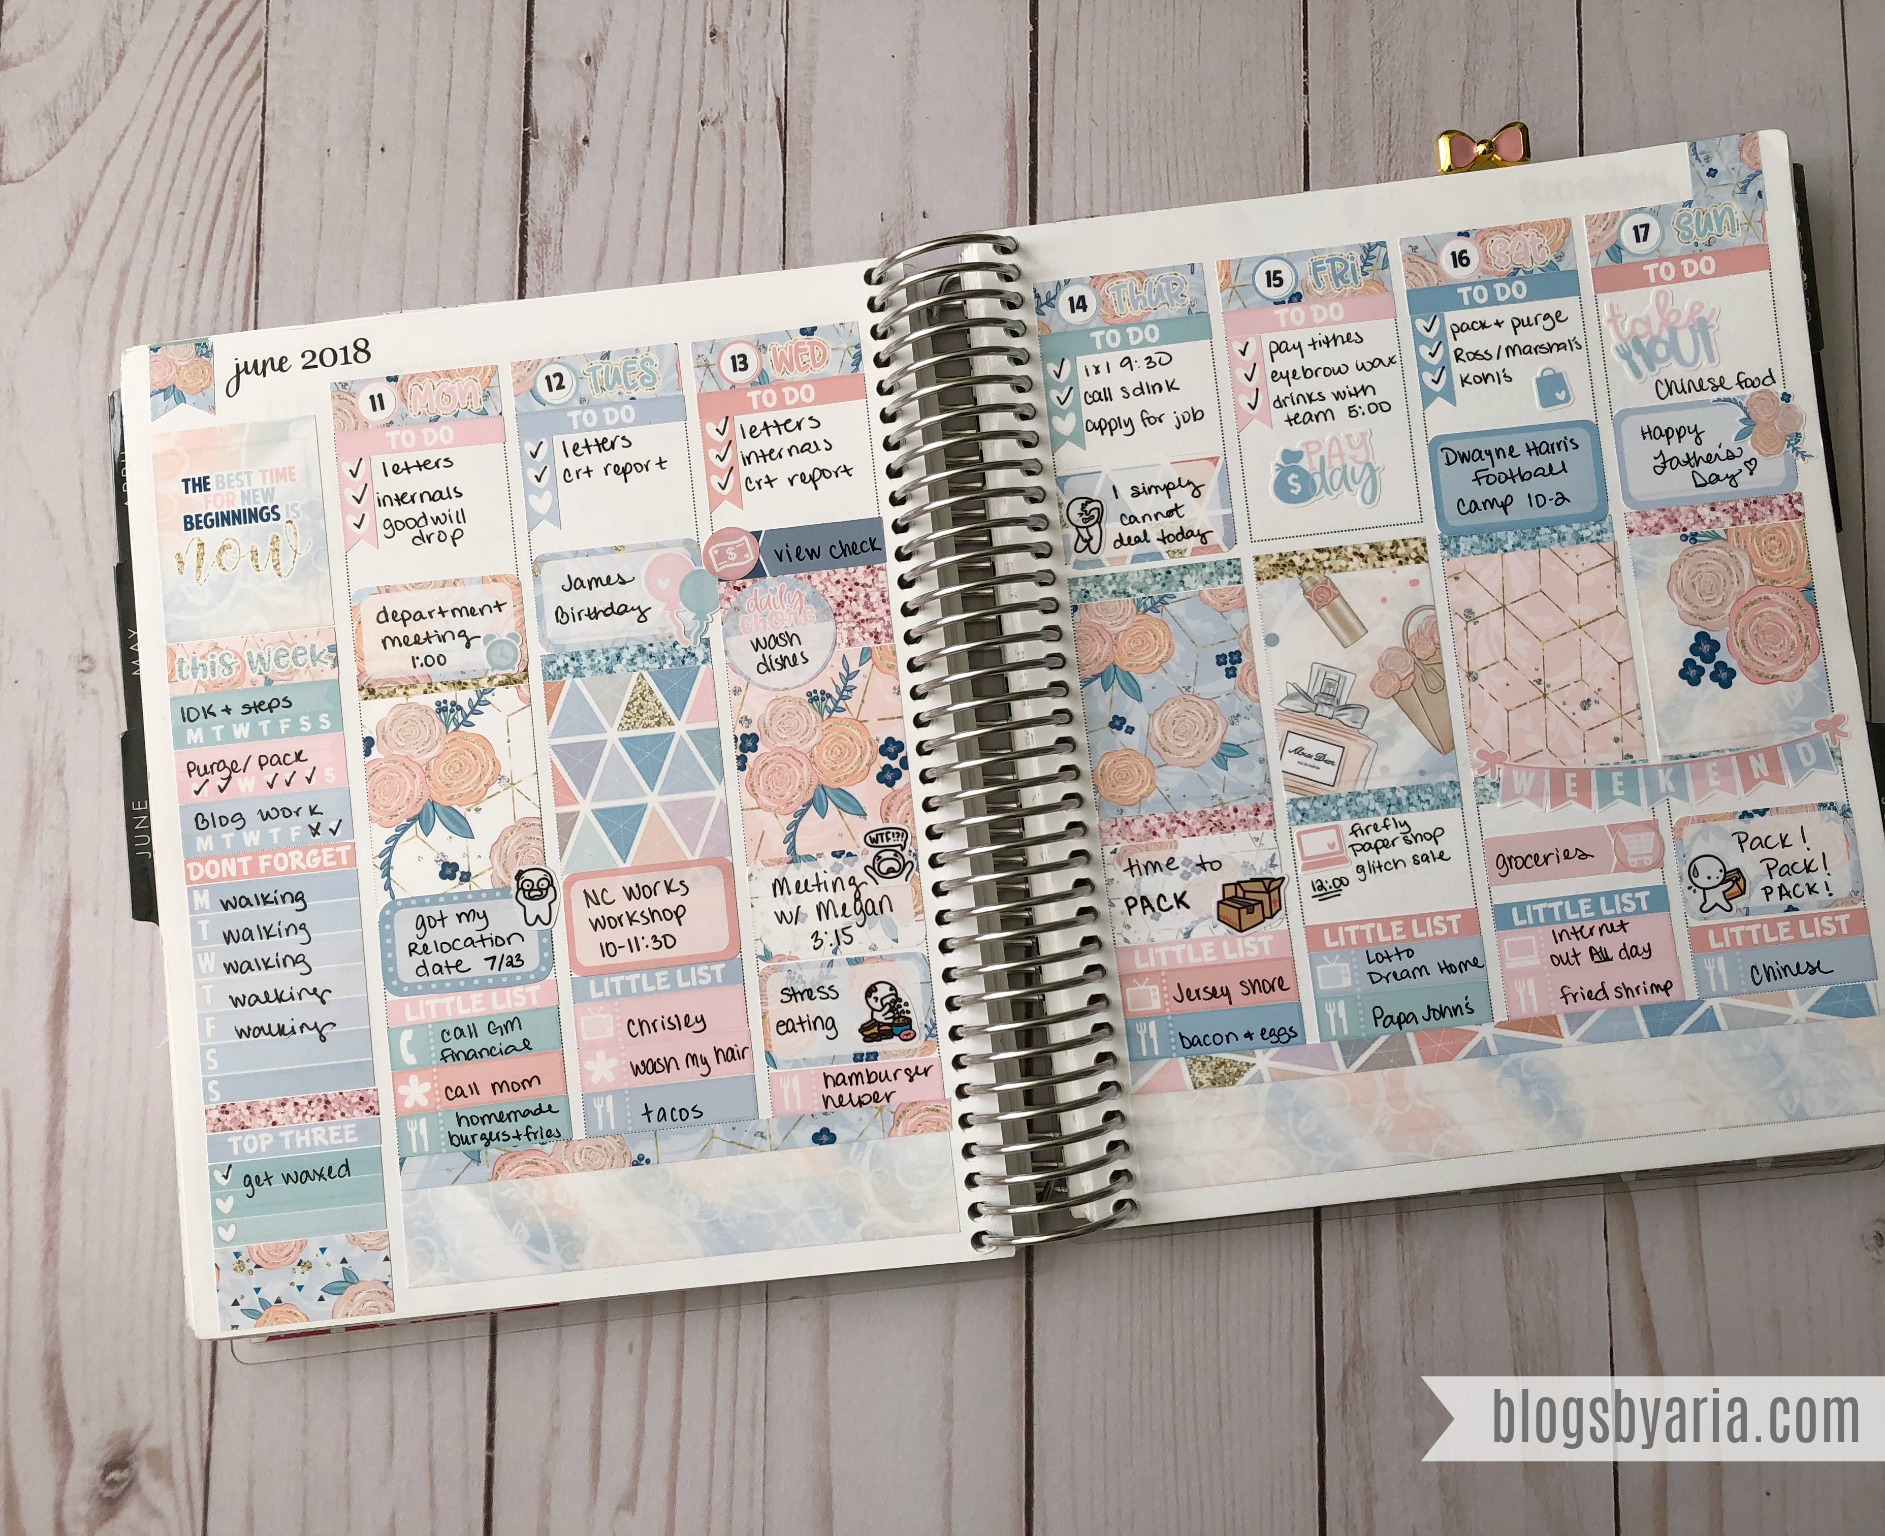 june 2018
THE BEST TIME
FOR NEW
BEGINNINGS IS
now
this week
10K + steps
M T W T F S S
Purge/pack
W S
Blog work
M T W T F
DONT FORGET
M walking
T walking
W walking
T walking
F walking
S
S
TOP THREE
get waxed
11 MON
TO DO
letters
internals
goodwill
drop
department
meeting
1:00
got my
Relocation
date 7/23
LITTLE LIST
call GM
financial
call mom
homemade
burgers+fries
12 TUES
TO DO
letters
crt report
James
Birthday
NC Works
workshop
10-11:30
LITTLE LIST
chrisley
wash my hair
tacos
13 WED
TO DO
letters
internals
crt report
$ view check
daily
chore
wash
dishes
WTF!?!
Meeting
w/ Megan
3:15
stress
eating
hamburger
helper
14 THUR
TO DO
1x1 9:30
call sdlnk
apply for job
I simply
cannot
deal today
time to
PACK
LITTLE LIST
Jersey Shore
bacon + eggs
15 FRI
TO DO
pay tithes
eyebrow wax
drinks with
team 5:00
PAY
$ day
Miss Dior
firefly
papershop
glitch sale
12:00
LITTLE LIST
Lotto
Dream Home
Papa John's
16 sat
TO DO
pack + purge
Ross/Marshal's
Kohl's
Dwayne Harris
Football
Camp 10-2
WEEKEND
groceries
LITTLE LIST
Internet
out All day
fried shrimp
17 sun
TO DO
take
OUT
Chinese food
Happy
Father's
Day
Pack!
Pack!
PACK!
LITTLE LIST
Chinese
APRIL
MAY
JUNE
blogsbyaria.com